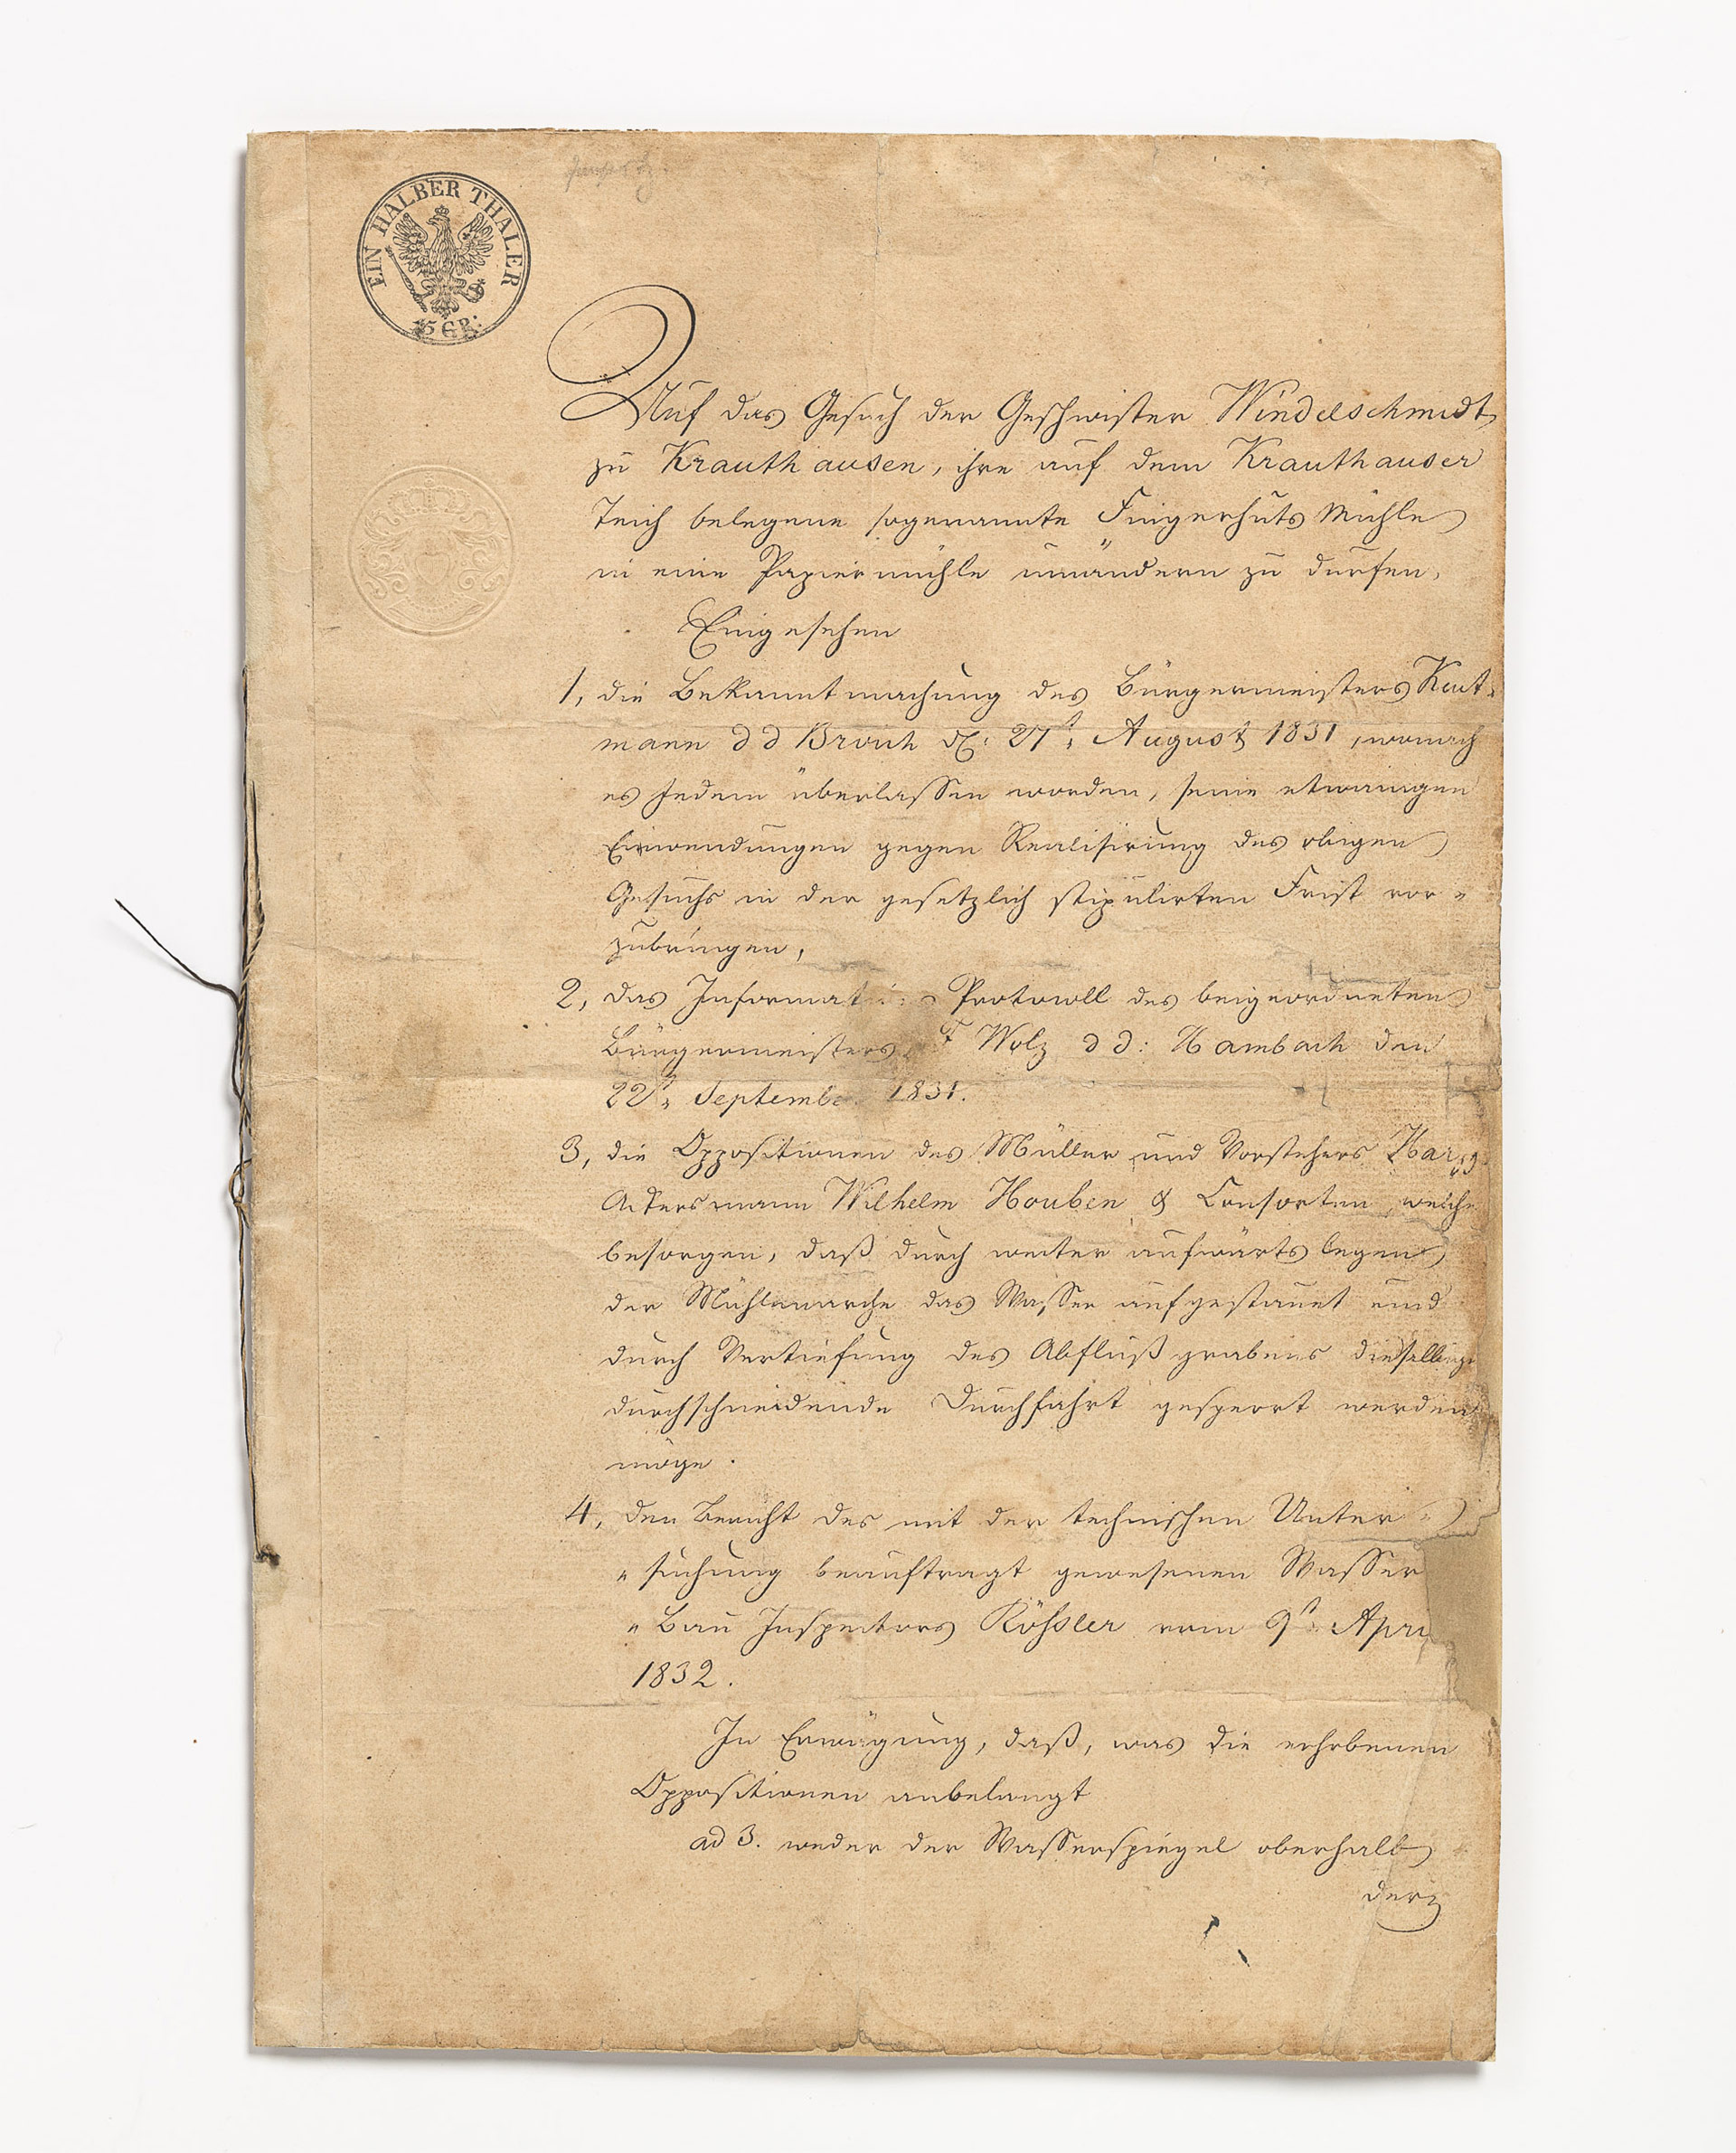 EIN HALBER THALER
15 Gr:
Auf das Gesuch der Geschwister Windelschmidt
zu Krauthausen, ihre auf dem Krauthauser
Teich belegene sogenannte Fingerhuts Mühle
in eine Papiermühle umändern zu dürfen,
Eingesehen
1, die Bekanntmachung des Bürgermeisters
mann dd Broich 27t. August 1831, wonach
es Jedem überlassen worden, seine etwaigen
Einwendungen gegen Realisirung des obigen
Gesuchs in der gesetzlich stipulirten Frist vor-
zubringen,
2, das Protocoll des beigeordneten
Bürgermeisters Wolz dd: Hambach den
22t. September 1831.
3, die Oppositionen des Müller und Vorstehers
Ackersmann Wilhelm Houben & Consorten, welche
besorgen, daß durch weiter aufwärts legen
der das Wasser aufgestauet und
durch Vertiefung des Abflußgrabens
durchschneidende Durchfahrt gesperrt werden
möge.
4, den Bericht des mit der technischen Unter-
"suchung beauftragt gewesenen Wasser
"Bau Inspectors Rößler vom 9t. Apri
1832.
In Erwägung, daß, was die erhobenen
Oppositionen anbelangt
ad 3. weder der Wasserspiegel oberhalb
der